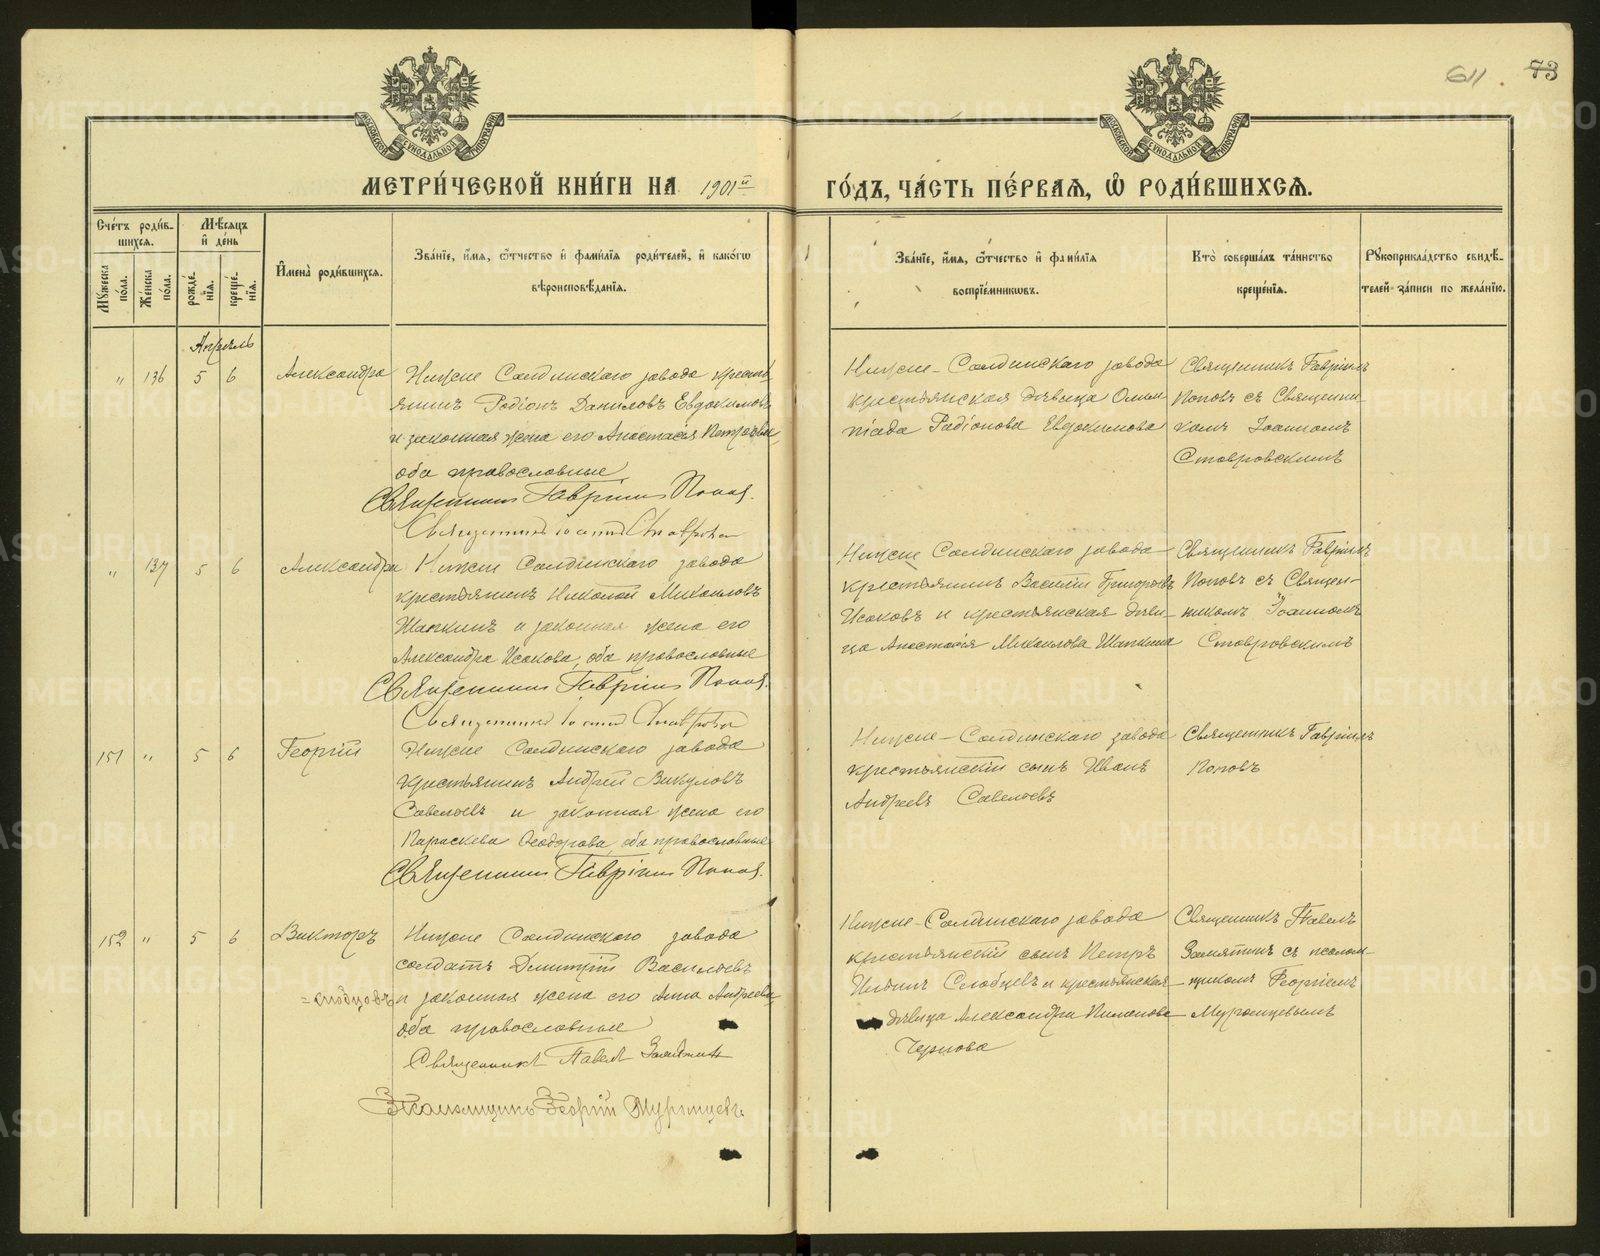 611 73
МОСКОВСКОЙ СѴНОДАЛЬНОЙ ТИПОГРАФІИ
МОСКОВСКОЙ СѴНОДАЛЬНОЙ ТИПОГРАФІИ
МЕТРИ́ЧЕСКОЙ КНИ́ГИ НА 1901й ГО́ДЪ, ЧА́СТЬ ПЕ́РВАѦ, Ѡ҆ РОДИ́ВШИХСѦ.
Сче́тъ роди́в-
шихсѧ.
Мѣ́сѧцъ
и҆ де́нь
Мꙋ́жеска
по́ла.
Же́нска
по́ла.
рожде́-
нїѧ.
креще́-
нїѧ.
И҆мена̀ роди́вшихсѧ.
Зва́нїе, и҆́мѧ, ѻ҆́тчество и҆ фами́лїѧ роди́телей, и҆ како́гѡ
вѣроисповѣ́данїѧ.
Зва́нїе, и҆́мѧ, ѻ҆́тчество и҆ фами́лїѧ
воспрїе́мникѡвъ.
Кто̀ соверша́лъ та́инство
креще́нїѧ.
Рꙋкоприкла́дство свидѣ́-
телей за́писи по жела́нїю.
Апрѣль
" 136 5 6 Александра
Нижне Салдинскаго завода кресть-
янинъ Родіонъ Даниловъ Евдокимовъ
и законная жена его Анастасія Петрова,
оба православные
Священникъ Гавріилъ Поповъ.
Священникъ Іоаннъ Ставровскій
Нижне-Салдинскаго завода
крестьянская дѣвица Олим-
піада Радіонова Евдокимова
Священникъ Гавріилъ
Поповъ съ Священни-
комъ Іоанномъ
Ставровскимъ
" 137 5 6 Александра
Нижне Салдинскаго завода
крестьянинъ Николай Михаиловъ
Шапкинъ и законная жена его
Александра Исакова, оба православные
Священникъ Гавріилъ Поповъ.
Священникъ Іоаннъ Ставровскій
Нижне Салдинскаго завода
крестьянинъ Василій Григорьевъ
Исаковъ и крестьянская дѣви-
ца Анастасія Михаилова Шапкина
Священникъ Гавріилъ
Поповъ съ Священ-
никомъ Іоанномъ
Ставровскимъ
151 " 5 6 Георгій
Нижне Салдинскаго завода
крестьянинъ Андрей Викуловъ
Савельевъ и законная жена его
Параскева Ѳеодорова, оба православные
Священникъ Гавріилъ Поповъ.
Нижне-Салдинскаго завода
крестьянскій сынъ Иванъ
Андреевъ Савельевъ
Священникъ Гавріилъ
Поповъ
152 " 5 6 Викторъ
Нижне Салдинскаго завода
солдатъ Димитрій Васильевъ
и законная жена его Анна Андреева,
оба православные
Священникъ Павелъ Замятинъ
Псаломщикъ Георгій Муромцевъ
Нижне-Салдинскаго завода
крестьянскій сынъ Петръ
Слобцевъ и крестьянская
дѣвица Александра Пименова
Чернова
Священникъ Павелъ
Замятинъ съ псалом-
щикомъ Георгіемъ
Муромцевымъ
METRIKI.GASO-URAL.RU